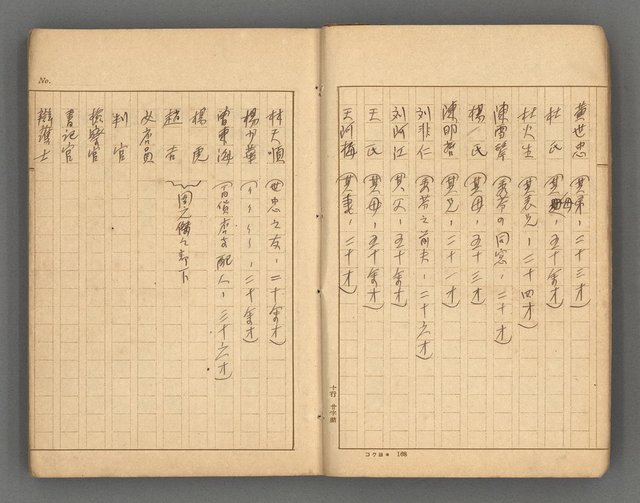 黄世忠(其弟,二十三才)
杜 氏(其母,五十余才)
杜火生(其表兄,二十四才)
陳雪華(秀芳の同窓,二十才)
楊 氏(其母,五十三才)
陳明哲(其兄,二十一才)
刘非仁(秀芳之前夫,二十六才)
刘阿江(其父,五十余才)
王 氏(其母,五十余才)
王阿梅(其妻,二十才)
十行 廿字詰
コクヨ 168
No.
林天順(世忠之友,二十余才)
楊少華(〃〃〃〃,二十余才)
曹東海(百貨店支配人,三十六才)
楊 虎
趙 吉
女店員
判 官
檢察官
書記官
辯護士